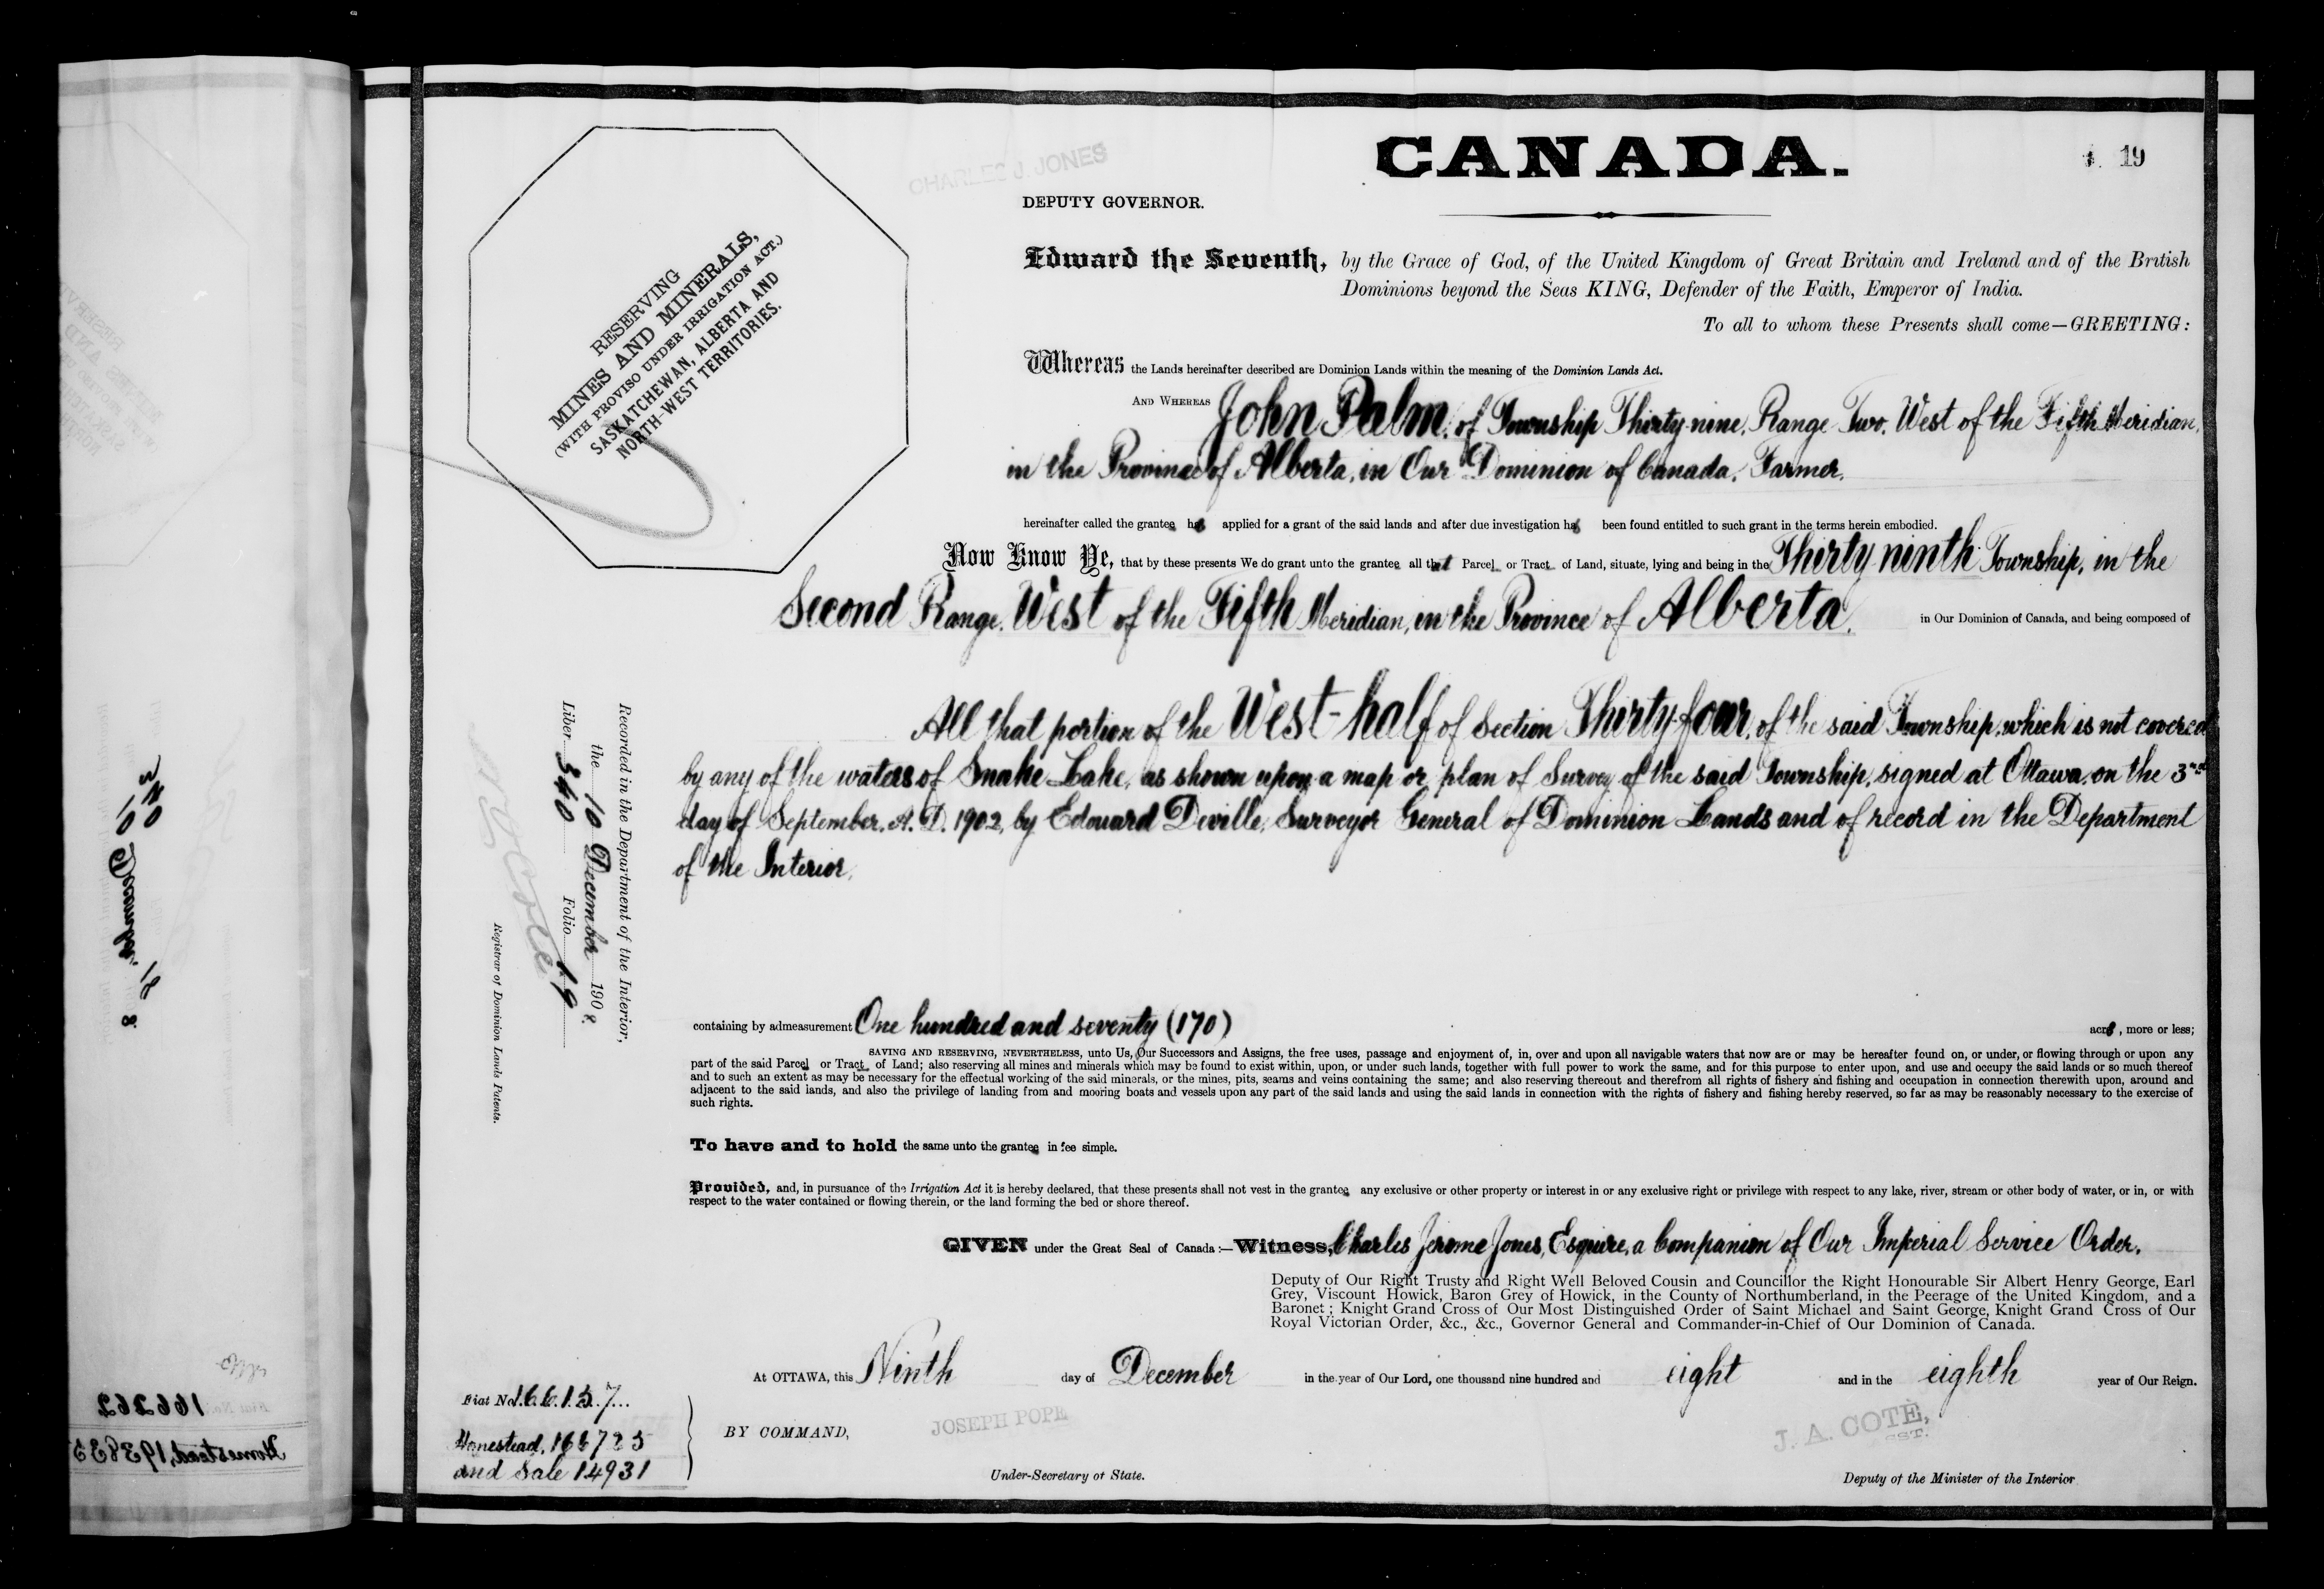 CANADA.
19
CHARLES J. JONES
DEPUTY GOVERNOR.
RESERVING
MINES AND MINERALS,
(WITH PROVISO UNDER IRRIGATION ACT.)
SASKATCHEWAN, ALBERTA AND
NORTH-WEST TERRITORIES.
Edward the Seventh, by the Grace of God, of the United Kingdom of Great Britain and Ireland and of the British
Dominions beyond the Seas KING, Defender of the Faith, Emperor of India.
To all to whom these Presents shall come—GREETING:
Whereas the Lands hereinafter described are Dominion Lands within the meaning of the Dominion Lands Act.
AND WHEREAS John Palm, of Township Thirty-nine, Range Two, West of the Fifth Meridian,
in the Province of Alberta, in Our Dominion of Canada, Farmer,
hereinafter called the grantee has applied for a grant of the said lands and after due investigation has been found entitled to such grant in the terms herein embodied.
Now Know Ye, that by these presents We do grant unto the grantee all that Parcel or Tract of Land, situate, lying and being in the Thirty-ninth Township, in the
Second Range, West of the Fifth Meridian, in the Province of Alberta, in Our Dominion of Canada, and being composed of
All that portion of the West-half of Section Thirty-four, of the said Township, which is not covered
by any of the waters of Snake Lake, as shown upon a map or plan of Survey of the said Township, signed at Ottawa, on the 3rd
day of September, A. D. 1902, by Edouard Deville, Surveyor General of Dominion Lands and of record in the Department
of the Interior,
containing by admeasurement One hundred and seventy (170) acres, more or less;
SAVING AND RESERVING, NEVERTHELESS, unto Us, Our Successors and Assigns, the free uses, passage and enjoyment of, in, over and upon all navigable waters that now are or may be hereafter found on, or under, or flowing through or upon any
part of the said Parcel or Tract of Land; also reserving all mines and minerals which may be found to exist within, upon, or under such lands, together with full power to work the same, and for this purpose to enter upon, and use and occupy the said lands or so much thereof
and to such an extent as may be necessary for the effectual working of the said minerals, or the mines, pits, seams and veins containing the same; and also reserving thereout and therefrom all rights of fishery and fishing and occupation in connection therewith upon, around and
adjacent to the said lands, and also the privilege of landing from and mooring boats and vessels upon any part of the said lands and using the said lands in connection with the rights of fishery and fishing hereby reserved, so far as may be reasonably necessary to the exercise of
such rights.
To have and to hold the same unto the grantee in fee simple.
Provided, and, in pursuance of the Irrigation Act it is hereby declared, that these presents shall not vest in the grantee any exclusive or other property or interest in or any exclusive right or privilege with respect to any lake, river, stream or other body of water, or in, or with
respect to the water contained or flowing therein, or the land forming the bed or shore thereof.
GIVEN under the Great Seal of Canada:—Witness, Charles Jerome Jones, Esquire, a Companion of Our Imperial Service Order,
Deputy of Our Right Trusty and Right Well Beloved Cousin and Councillor the Right Honourable Sir Albert Henry George, Earl
Grey, Viscount Howick, Baron Grey of Howick, in the County of Northumberland, in the Peerage of the United Kingdom, and a
Baronet; Knight Grand Cross of Our Most Distinguished Order of Saint Michael and Saint George, Knight Grand Cross of Our
Royal Victorian Order, &c., &c., Governor General and Commander-in-Chief of Our Dominion of Canada.
At OTTAWA, this Ninth day of December in the year of Our Lord, one thousand nine hundred and eight and in the eighth year of Our Reign.
BY COMMAND,
JOSEPH POPE
Under-Secretary of State.
J. A. COTÉ,
Deputy of the Minister of the Interior
Fiat No. 166137
Homestead, 166725
and Sale 14931
Recorded in the Department of the Interior,
the 10 December 1908.
Liber 340 Folio 19
N O Coté
Registrar of Dominion Lands Patents.
10 December 8
340
166262
Homestead, 193835